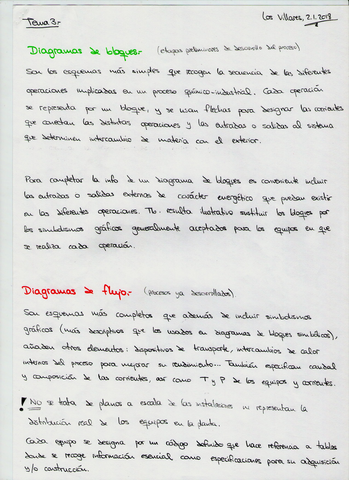 Tema 3.-
Los Villares, 2.1.2018
Diagramas de bloques.- (etapas preliminares de desarrollo del proceso)
Son los esquemas más simples que recogen la secuencia de las diferentes
operaciones implicadas en un proceso químico-industrial. Cada operación
se representa por un bloque, y se usan flechas para designar las corrientes
que conectan las distintas operaciones y las entradas o salidas al sistema
que determinen intercambio de materia con el exterior.
Para completar la info de un diagrama de bloques es conveniente incluir
las entradas o salidas externas de carácter energético que puedan existir
en las diferentes operaciones. Tb. resulta ilustrativo sustituir los bloques por
los simbolismos gráficos generalmente aceptados para los equipos en que
se realiza cada operación.
Diagramas de flujo.- (procesos ya desarrollados)
Son esquemas más completos que además de incluir simbolismos
gráficos (más descriptivos que los usados en diagramas de bloques simbólicos),
añaden otros elementos: dispositivos de transporte, intercambios de calor
internos del proceso para mejorar su rendimiento... También especifican caudal
y composición de las corrientes, así como T y P de los equipos y corrientes.
! NO se trata de planos a escala de las instalaciones ni representan la
distribución real de los equipos en la planta.
Cada equipo se designa por un código definido que hace referencia a tablas
donde se recoge información esencial como especificaciones para su adquisición
y/o construcción.